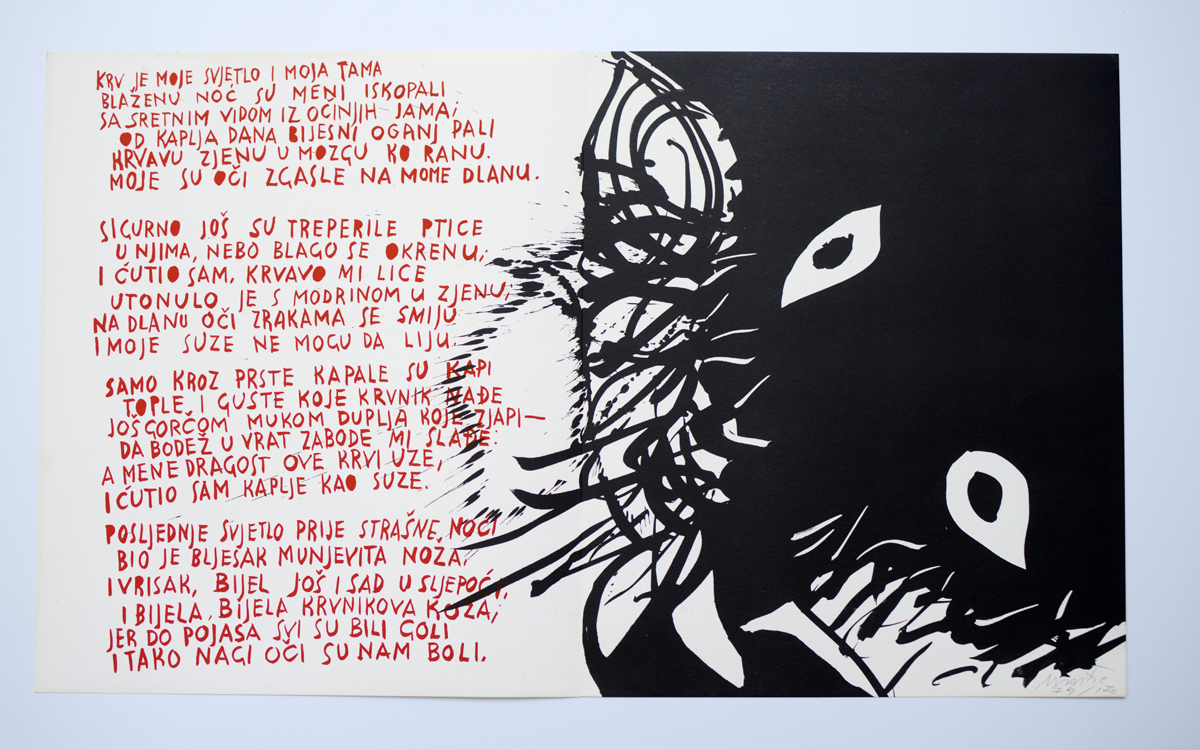 KRV JE MOJE SVJETLO I MOJA TAMA
BLAŽENU NOĆ SU MENI ISKOPALI
SA SRETNIM VIDOM IZ OČINJIH JAMA;
OD KAPLJA DANA BIJESNI OGANJ PALI
KRVAVU ZJENU U MOZGU KO RANU.
MOJE SU OČI ZGASLE NA MOME DLANU.
SIGURNO JOŠ SU TREPERILE PTICE
U NJIMA, NEBO BLAGO SE OKRENU;
I ĆUTIO SAM, KRVAVO MI LICE
UTONULO JE S MODRINOM U ZJENU;
NA DLANU OČI ZRAKAMA SE SMIJU
I MOJE SUZE NE MOGU DA LIJU.
SAMO KROZ PRSTE KAPALE SU KAPI
TOPLE I GUSTE KOJE KRVNIK NAĐE
JOŠ GORČOM MUKOM DUPLJA KOJE ZJAPI—
DA BODEŽ U VRAT ZABODE MI SLAĐE:
A MENE DRAGOST OVE KRVI UZE,
I ĆUTIO SAM KAPLJE KAO SUZE.
POSLJEDNJE SVJETLO PRIJE STRAŠNE NOĆI
BIO JE BLJESAK MUNJEVITA NOŽA,
I VRISAK, BIJEL JOŠ I SAD U SLJEPOĆI,
I BIJELA, BIJELA KRVNIKOVA KOŽA;
JER DO POJASA SVI SU BILI GOLI
I TAKO NAGI OČI SU NAM BOLI.